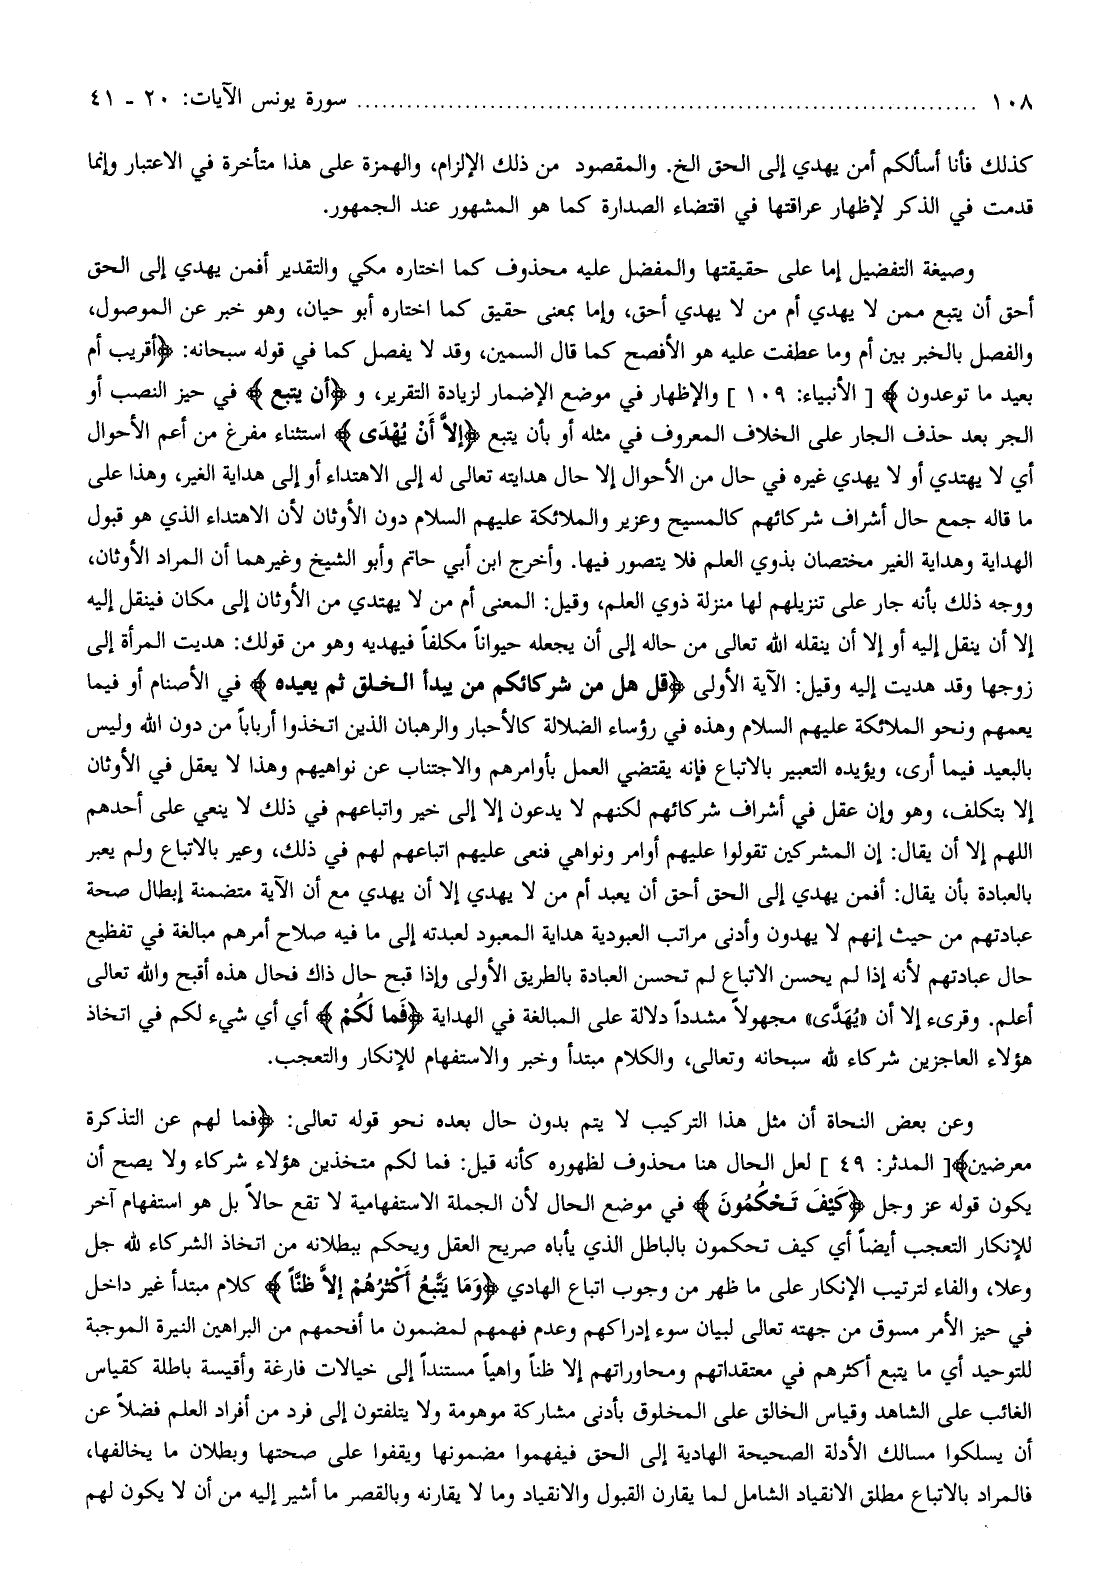 ١٠٨ ........................................................................... سورة يونس الآيات: ٢٠ - ٤١
كذلك فأنا أسألكم أمن يهدي إلى الحق الخ. والمقصود من ذلك الإلزام، والهمزة على هذا متأخرة في الاعتبار وإنما
قدمت في الذكر لإظهار عراقتها في اقتضاء الصدارة كما هو المشهور عند الجمهور.
وصيغة التفضيل إما على حقيقتها والمفضل عليه محذوف كما اختاره مكي والتقدير أفمن يهدي إلى الحق
أحق أن يتبع ممن لا يهدي أم من لا يهدي أحق، وإما بمعنى حقيق كما اختاره أبو حيان، وهو خبر عن الموصول،
والفصل بالخبر بين أم وما عطفت عليه هو الأفصح كما قال السمين، وقد لا يفصل كما في قوله سبحانه: ﴿أقريب أم
بعيد ما توعدون ﴾ [ الأنبياء: ١٠٩ ] والإظهار في موضع الإضمار لزيادة التقرير، و ﴿أن يتبع ﴾ في حيز النصب أو
الجر بعد حذف الجار على الخلاف المعروف في مثله أو بأن يتبع ﴿إلاَّ أَنْ يُهْدَى ﴾ استثناء مفرغ من أعم الأحوال
أي لا يهتدي أو لا يهدي غيره في حال من الأحوال إلا حال هدايته تعالى له إلى الاهتداء أو إلى هداية الغير، وهذا على
ما قاله جمع حال أشراف شركائهم كالمسيح وعزير والملائكة عليهم السلام دون الأوثان لأن الاهتداء الذي هو قبول
الهداية وهداية الغير مختصان بذوي العلم فلا يتصور فيها. وأخرج ابن أبي حاتم وأبو الشيخ وغيرهما أن المراد الأوثان،
ووجه ذلك بأنه جار على تنزيلهم لها منزلة ذوي العلم، وقيل: المعنى أم من لا يهتدي من الأوثان إلى مكان فينقل إليه
إلا أن ينقل إليه أو إلا أن ينقله الله تعالى من حاله إلى أن يجعله حيواناً مكلفاً فيهديه وهو من قولك: هديت المرأة إلى
زوجها وقد هديت إليه وقيل: الآية الأولى ﴿قل هل من شركائكم من يبدأ الخلق ثم يعيده ﴾ في الأصنام أو فيما
يعمهم ونحو الملائكة عليهم السلام وهذه في رؤساء الضلالة كالأحبار والرهبان الذين اتخذوا أرباباً من دون الله وليس
بالبعيد فيما أرى، ويؤيده التعبير بالاتباع فإنه يقتضي العمل بأوامرهم والاجتناب عن نواهيهم وهذا لا يعقل في الأوثان
إلا بتكلف، وهو وإن عقل في أشراف شركائهم لكنهم لا يدعون إلا إلى خير واتباعهم في ذلك لا ينعي على أحدهم
اللهم إلا أن يقال: إن المشركين تقولوا عليهم أوامر ونواهي فنعى عليهم اتباعهم لهم في ذلك، وعبر بالاتباع ولم يعبر
بالعبادة بأن يقال: أفمن يهدي إلى الحق أحق أن يعبد أم من لا يهدي إلا أن يهدي مع أن الآية متضمنة إبطال صحة
عبادتهم من حيث إنهم لا يهدون وأدنى مراتب العبودية هداية المعبود لعبدته إلى ما فيه صلاح أمرهم مبالغة في تفظيع
حال عبادتهم لأنه إذا لم يحسن الاتباع لم تحسن العبادة بالطريق الأولى وإذا قبح حال ذاك فحال هذه أقبح والله تعالى
أعلم. وقرىء إلا أن «يُهَدَّى» مجهولاً مشدداً دلالة على المبالغة في الهداية ﴿فَما لَكُمْ ﴾ أي أي شيء لكم في اتخاذ
هؤلاء العاجزين شركاء لله سبحانه وتعالى، والكلام مبتدأ وخبر والاستفهام للإنكار والتعجب.
وعن بعض النحاة أن مثل هذا التركيب لا يتم بدون حال بعده نحو قوله تعالى: ﴿فما لهم عن التذكرة
معرضين﴾[ المدثر: ٤٩ ] لعل الحال هنا محذوف لظهوره كأنه قيل: فما لكم متخذين هؤلاء شركاء ولا يصح أن
يكون قوله عز وجل ﴿كَيْفَ تَحْكُمُونَ ﴾ في موضع الحال لأن الجملة الاستفهامية لا تقع حالاً بل هو استفهام آخر
للإنكار التعجب أيضاً أي كيف تحكمون بالباطل الذي يأباه صريح العقل ويحكم ببطلانه من اتخاذ الشركاء لله جل
وعلا، والفاء لترتيب الإنكار على ما ظهر من وجوب اتباع الهادي ﴿وَمَا يَتَّبِعُ أَكْثَرُهُمْ إلاَّ ظَنَّاً ﴾ كلام مبتدأ غير داخل
في حيز الأمر مسوق من جهته تعالى لبيان سوء إدراكهم وعدم فهمهم لمضمون ما أفحمهم من البراهين النيرة الموجبة
للتوحيد أي ما يتبع أكثرهم في معتقداتهم ومحاوراتهم إلا ظناً واهياً مستنداً إلى خيالات فارغة وأقيسة باطلة كقياس
الغائب على الشاهد وقياس الخالق على المخلوق بأدنى مشاركة موهومة ولا يتلفتون إلى فرد من أفراد العلم فضلاً عن
أن يسلكوا مسالك الأدلة الصحيحة الهادية إلى الحق فيفهموا مضمونها ويقفوا على صحتها وبطلان ما يخالفها،
فالمراد بالاتباع مطلق الانقياد الشامل لما يقارن القبول والانقياد وما لا يقارنه وبالقصر ما أشير إليه من أن لا يكون لهم